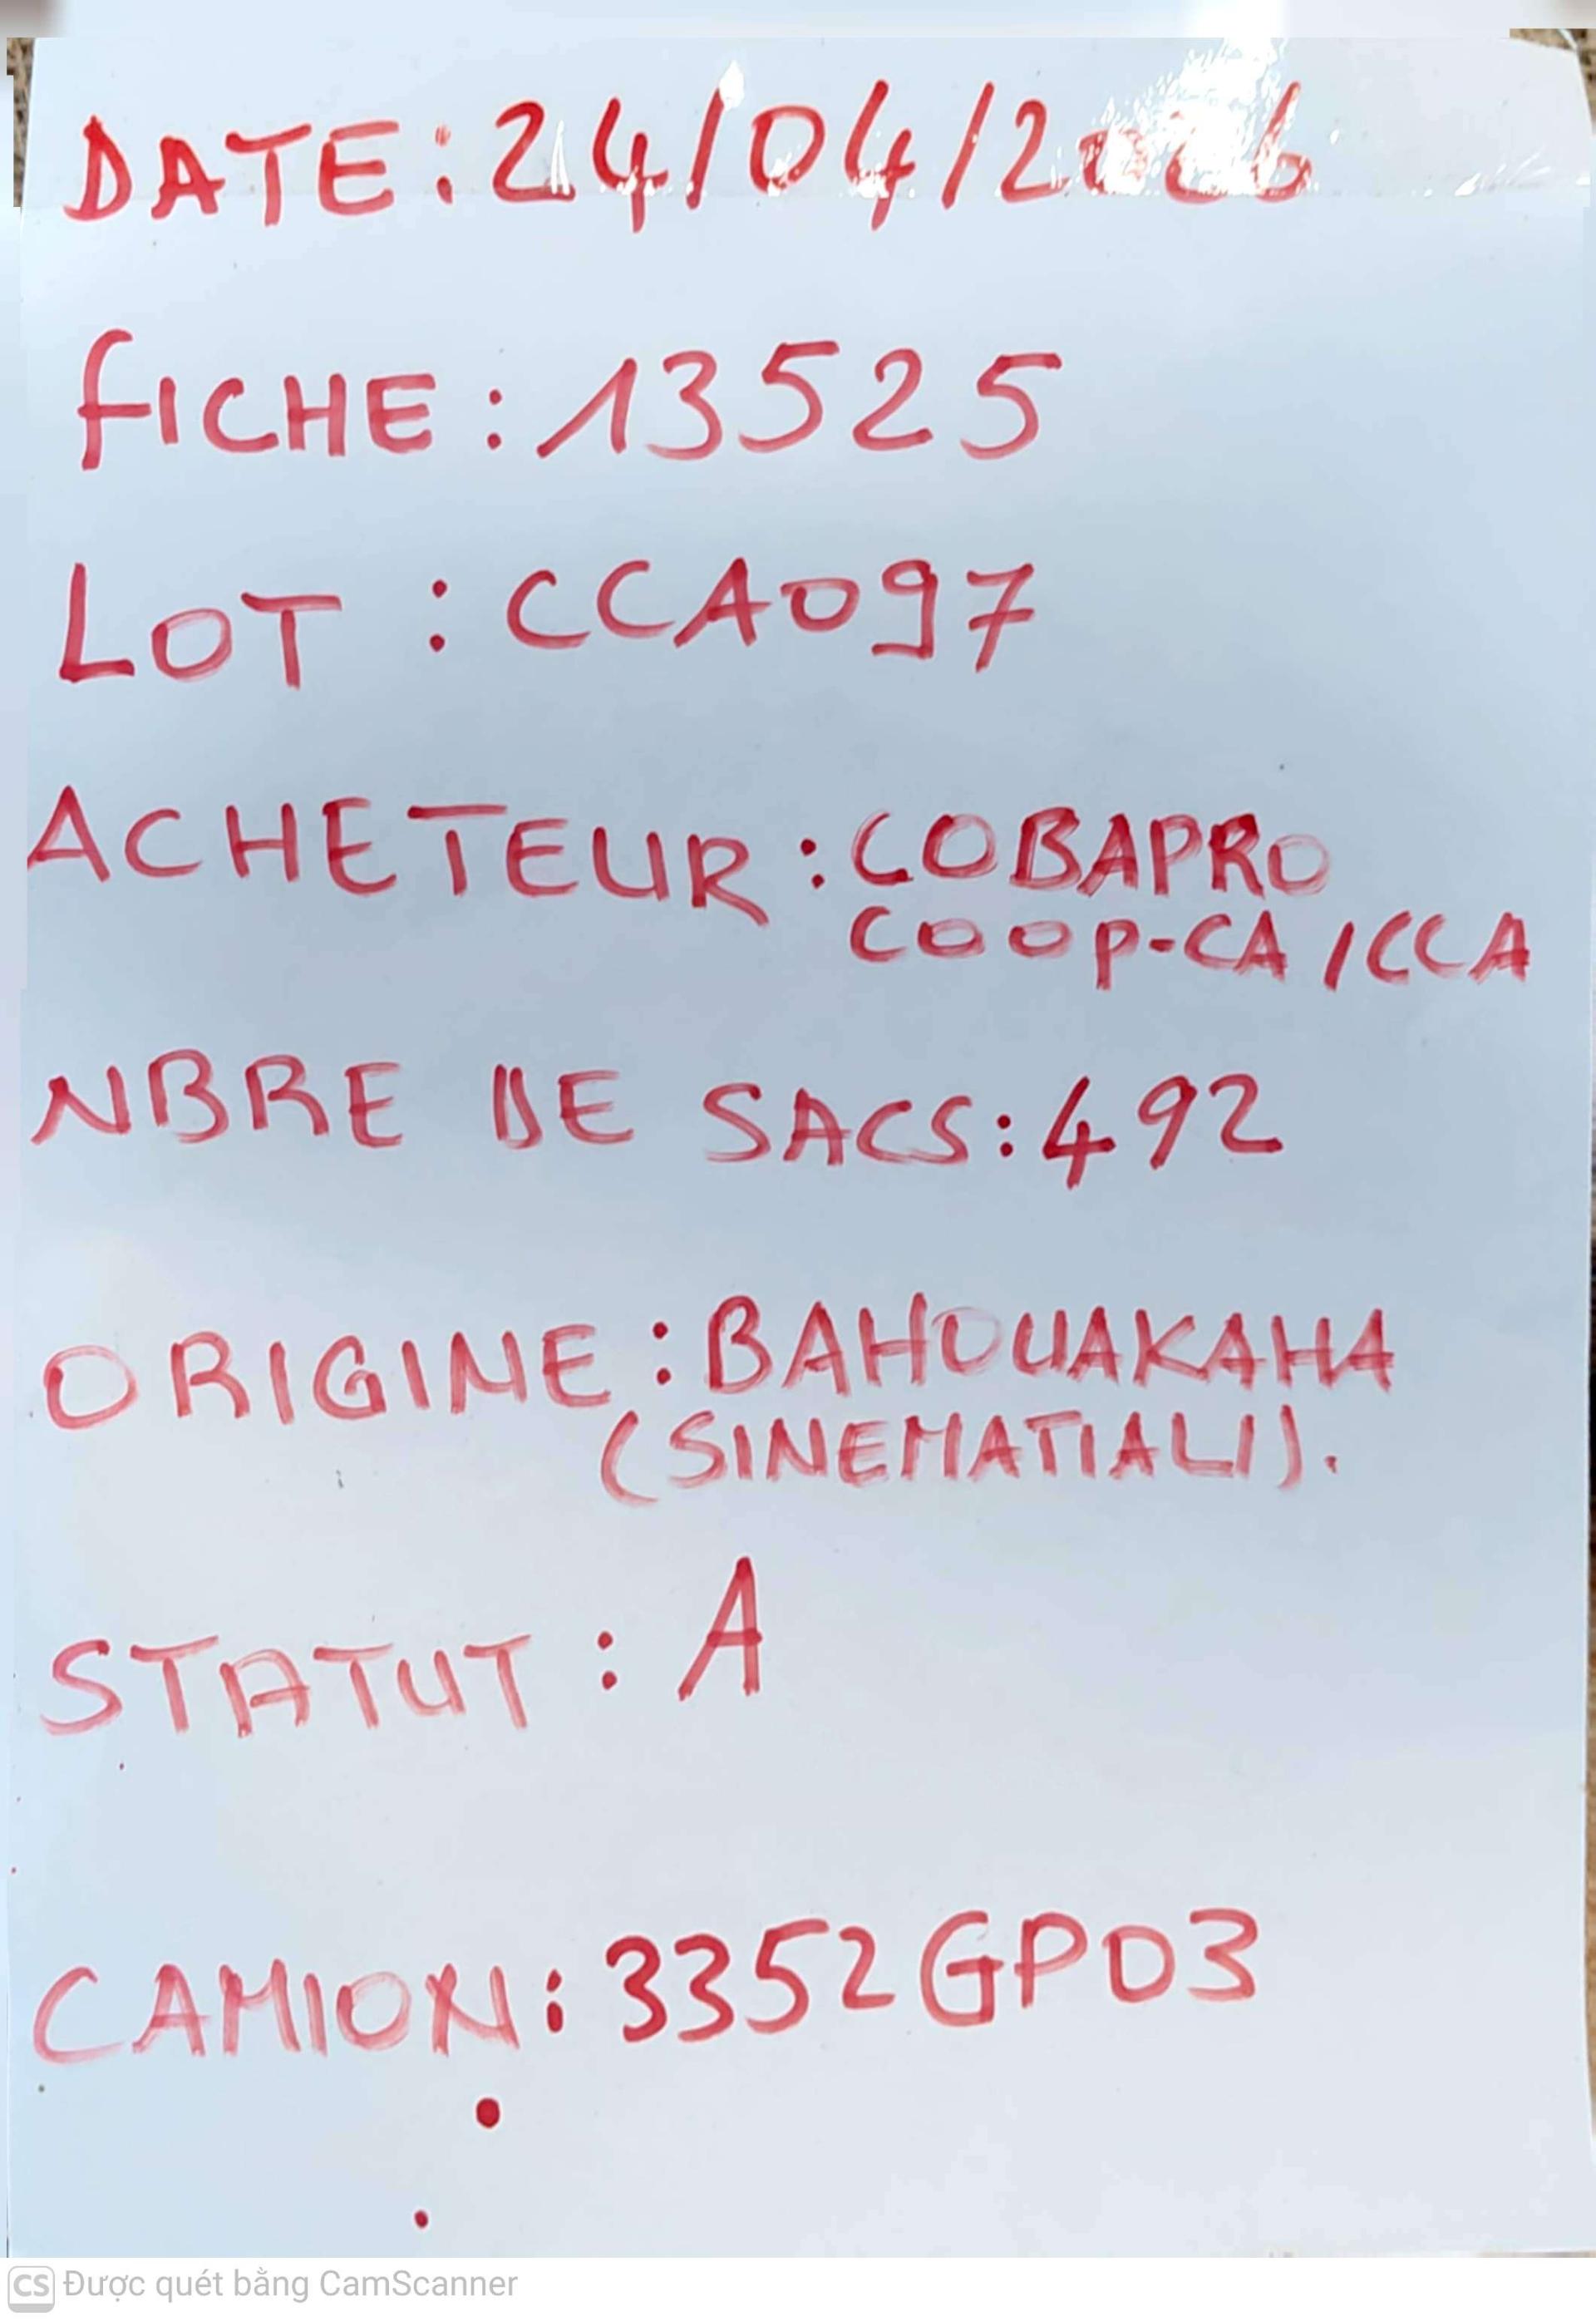 DATE : 24/04/2026
FICHE : 13525
LOT : CCA097
ACHETEUR : COBAPRO
COOP-CA /CCA
NBRE DE SACS : 492
ORIGINE : BAHOUAKAHA
(SINEMATIALI).
STATUT : A
CAMION : 3352GP03
CS Được quét bằng CamScanner